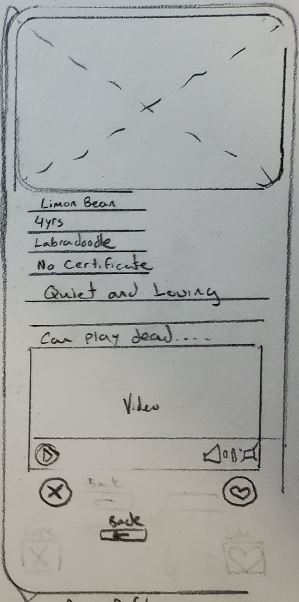 Limon Bean
4yrs
Labradoodle
No Certificate
Quiet and Loving
Can play dead....
Video
Back
Back